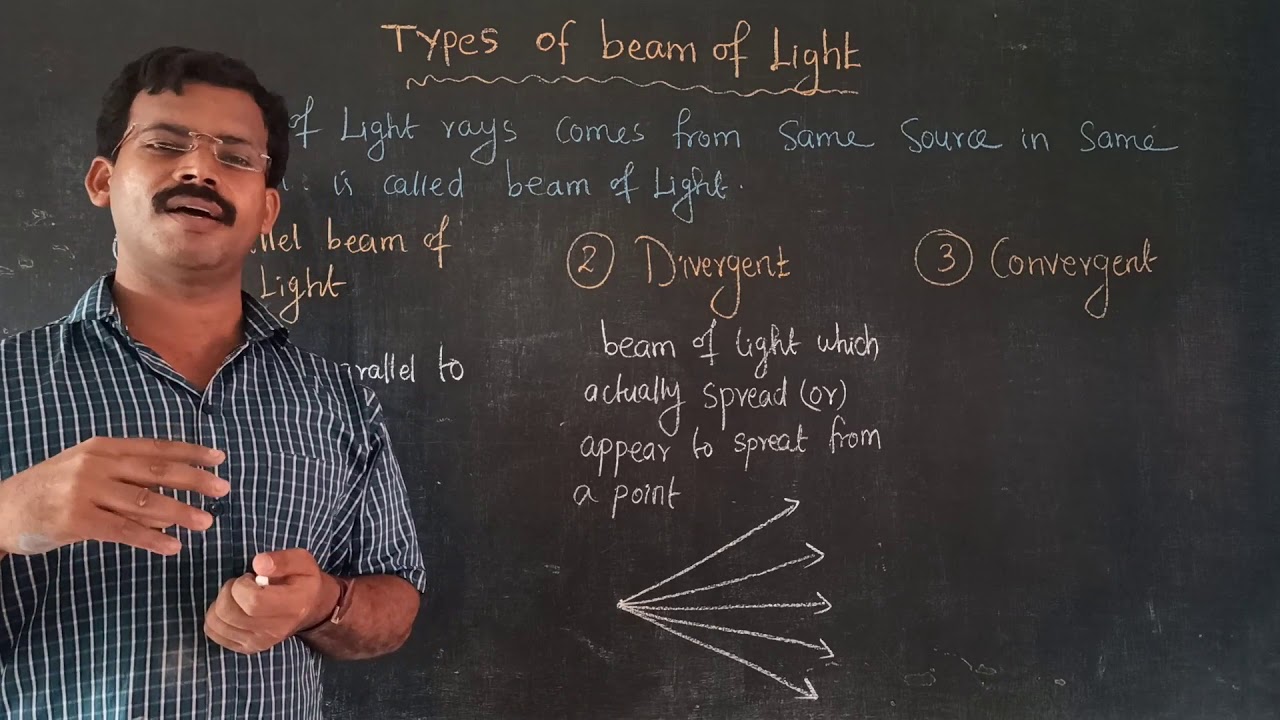 Types of beam of Light
of Light rays comes from same source in same
is called beam of Light.
beam of
Light
parallel to
② Divergent
beam of light which
actually spread (or)
appear to spreat from
a point
③ Convergent